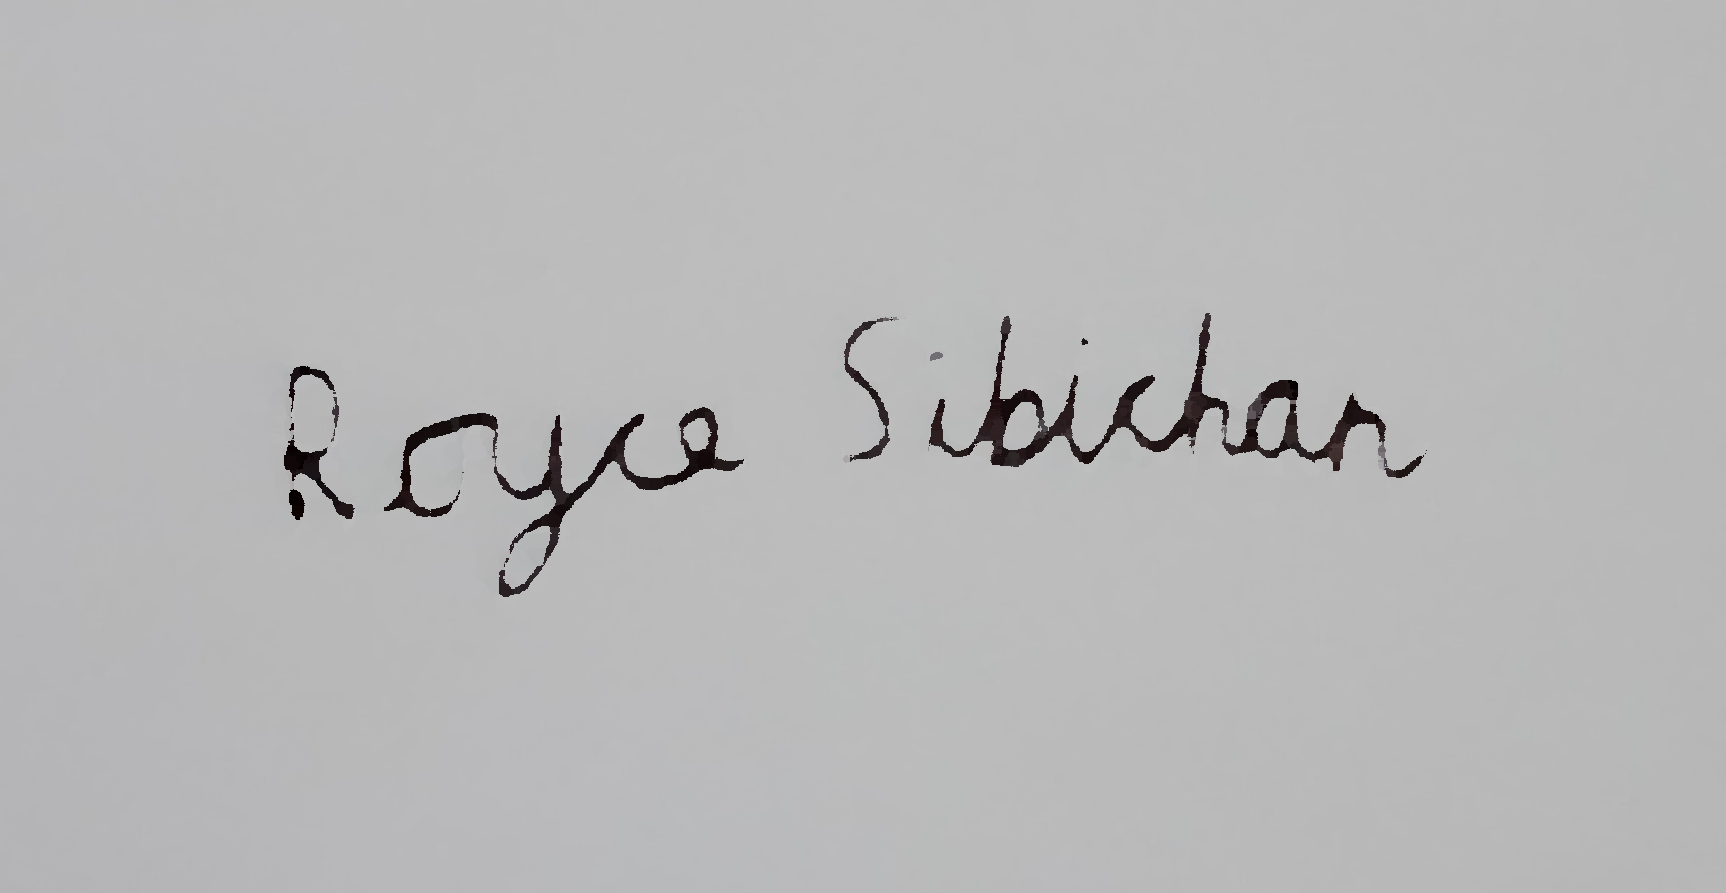 Royce Sibichan